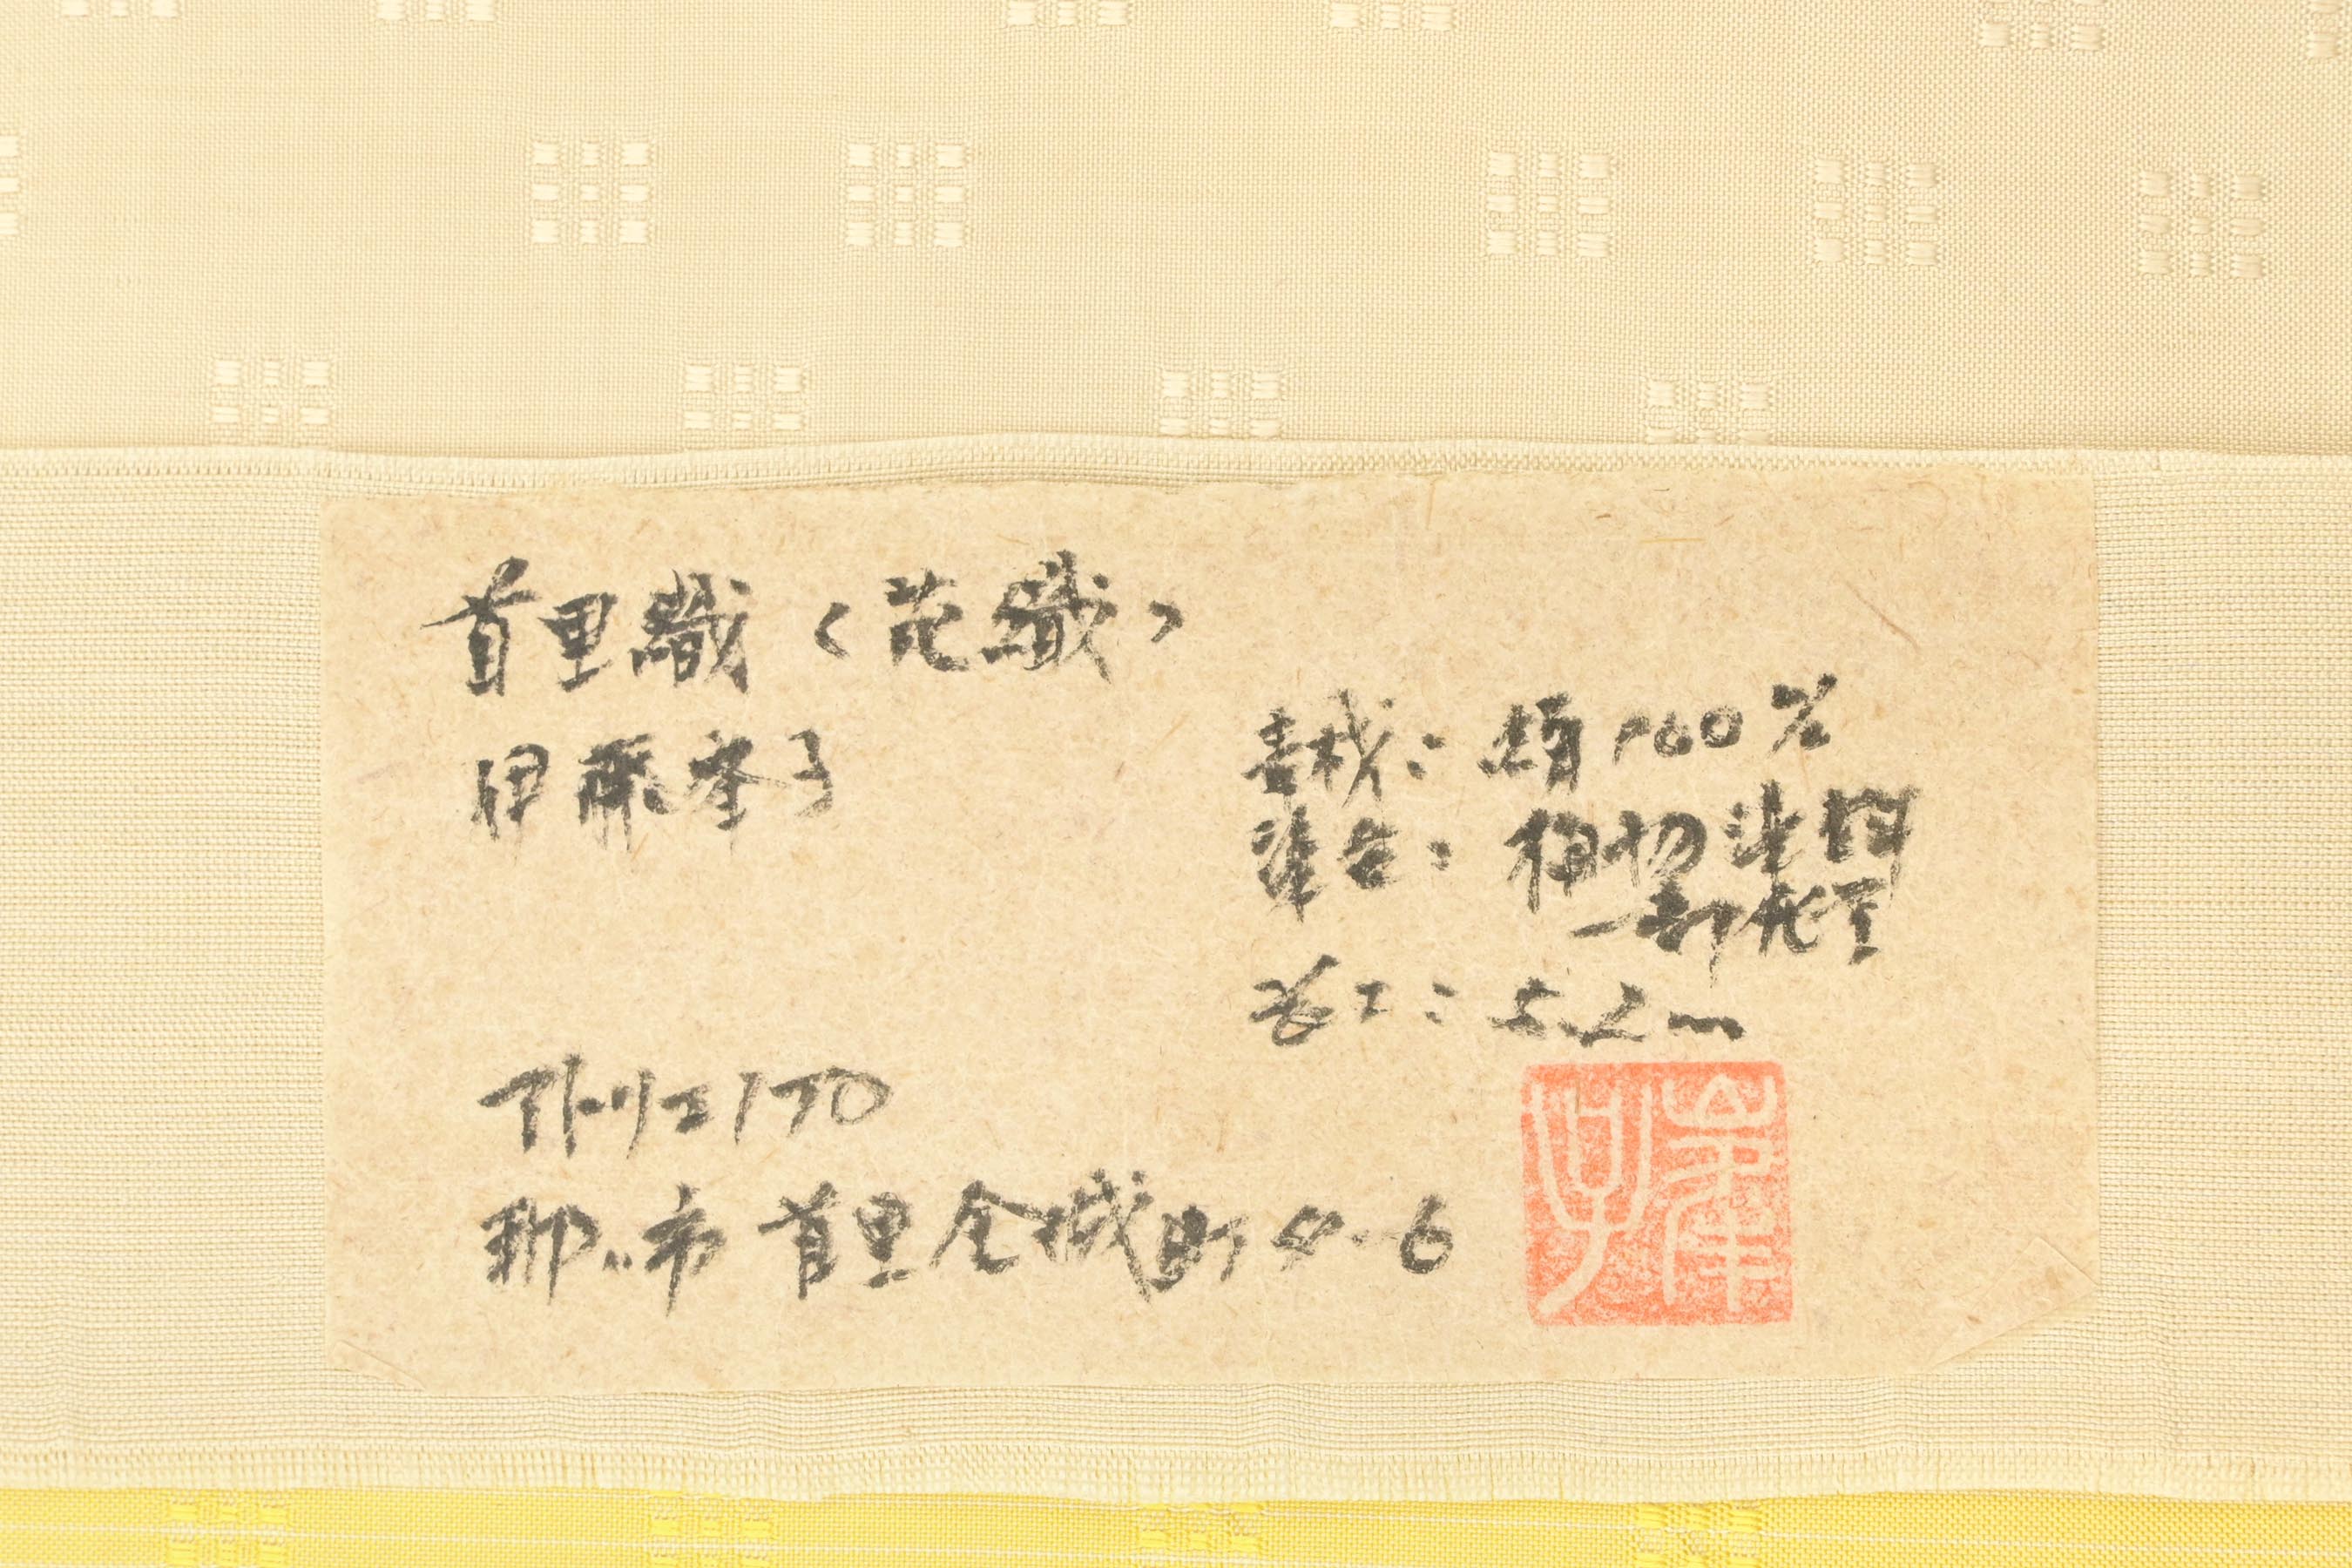 首里織〈花織〉
伊藤峯子
素材：絹100%
染色：植物染料
一部化学
長さ：5.2m
アトリエ170
那ハ市首里金城町4-6
峯